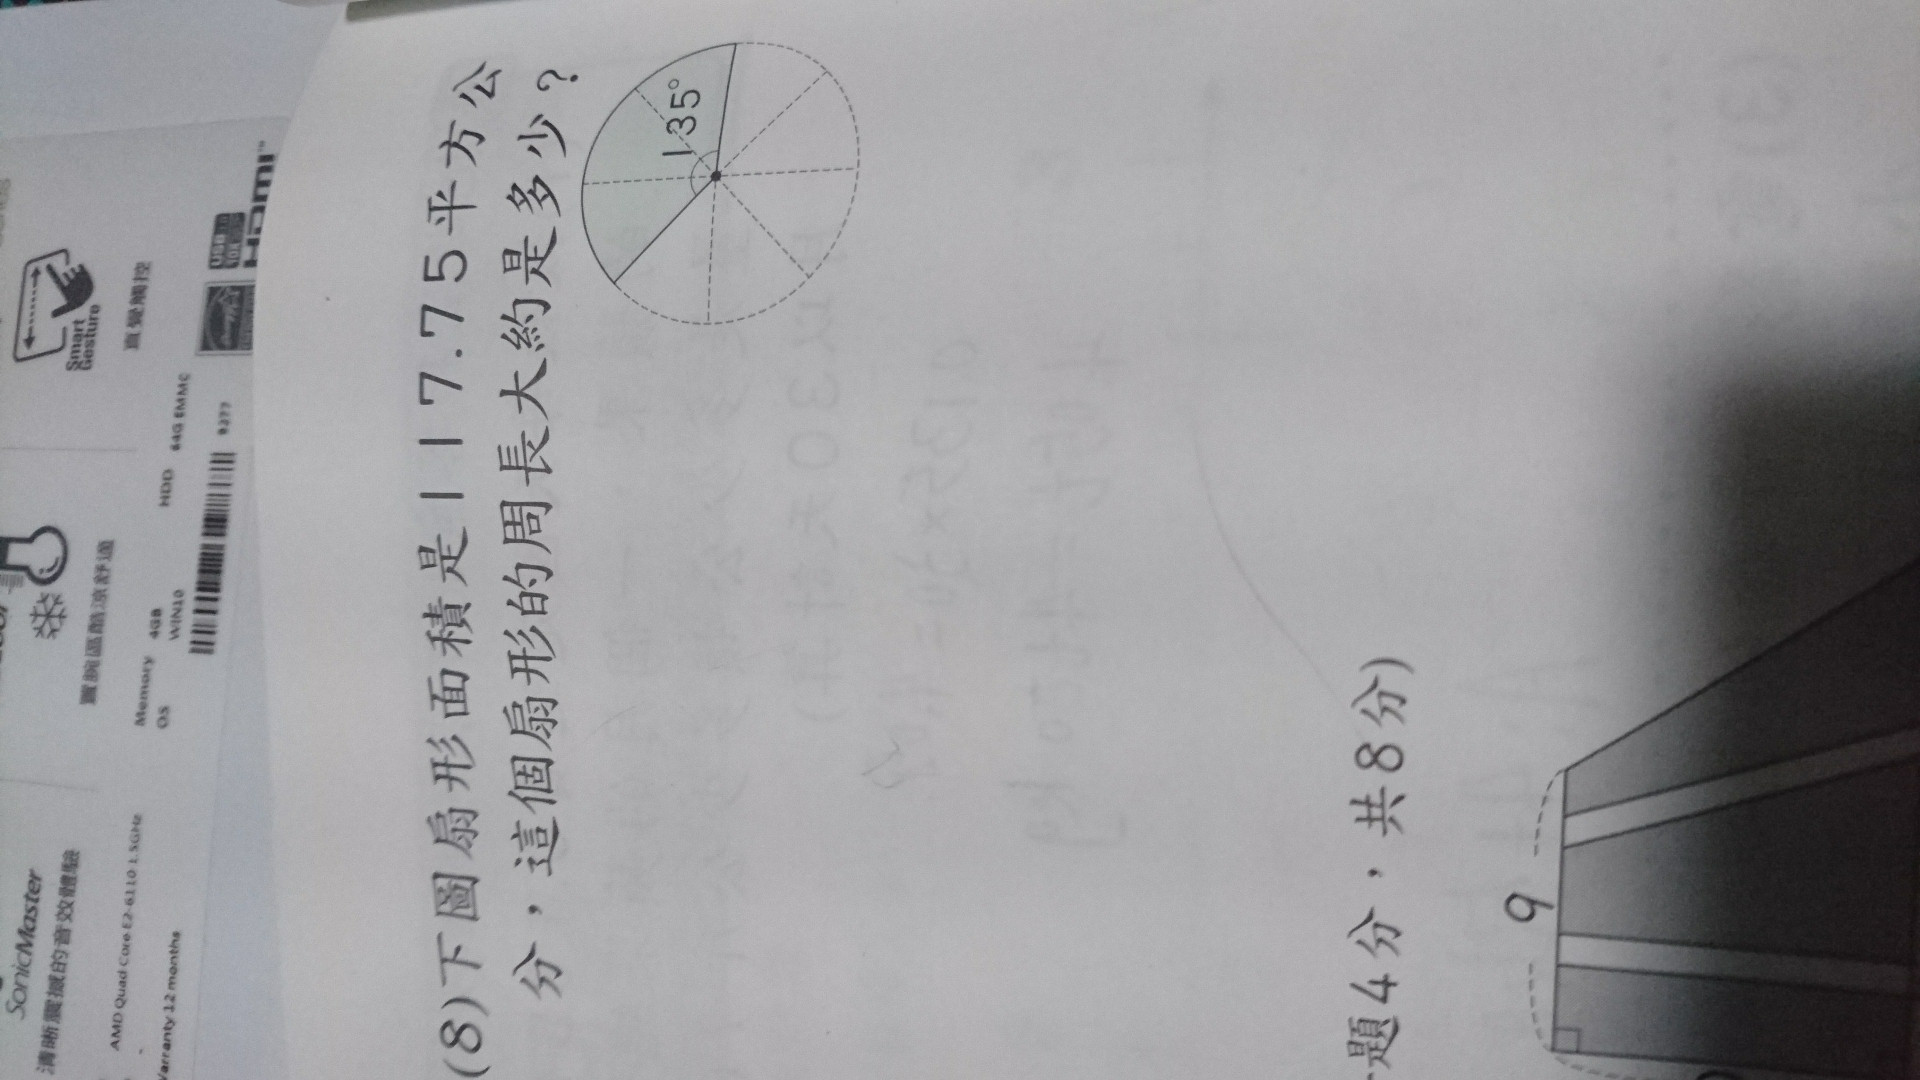 (8)下圖扇形面積是117.75平方公
分，這個扇形的周長大約是多少？
135°
題4分，共8分)
9
SonicMaster
清晰震撼的音效體驗
AMD Quad Core E2-6110 1.5GHz
Warranty 12 months
置腕區酷涼舒適
Memory 4GB
OS WIN10
HDD 64G EMMC
9277
Smart
Gesture
直覺觸控